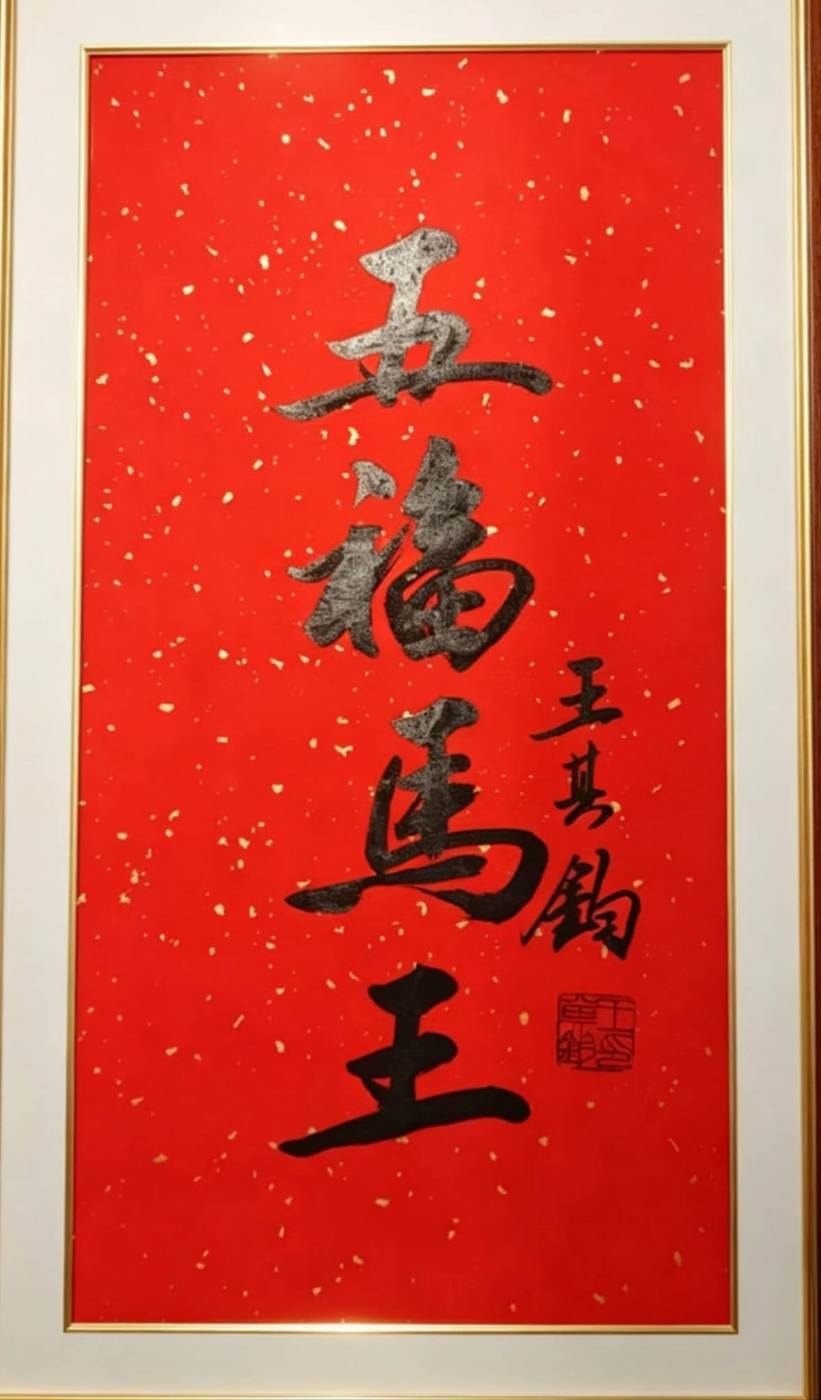 五福馬王
王其鈞